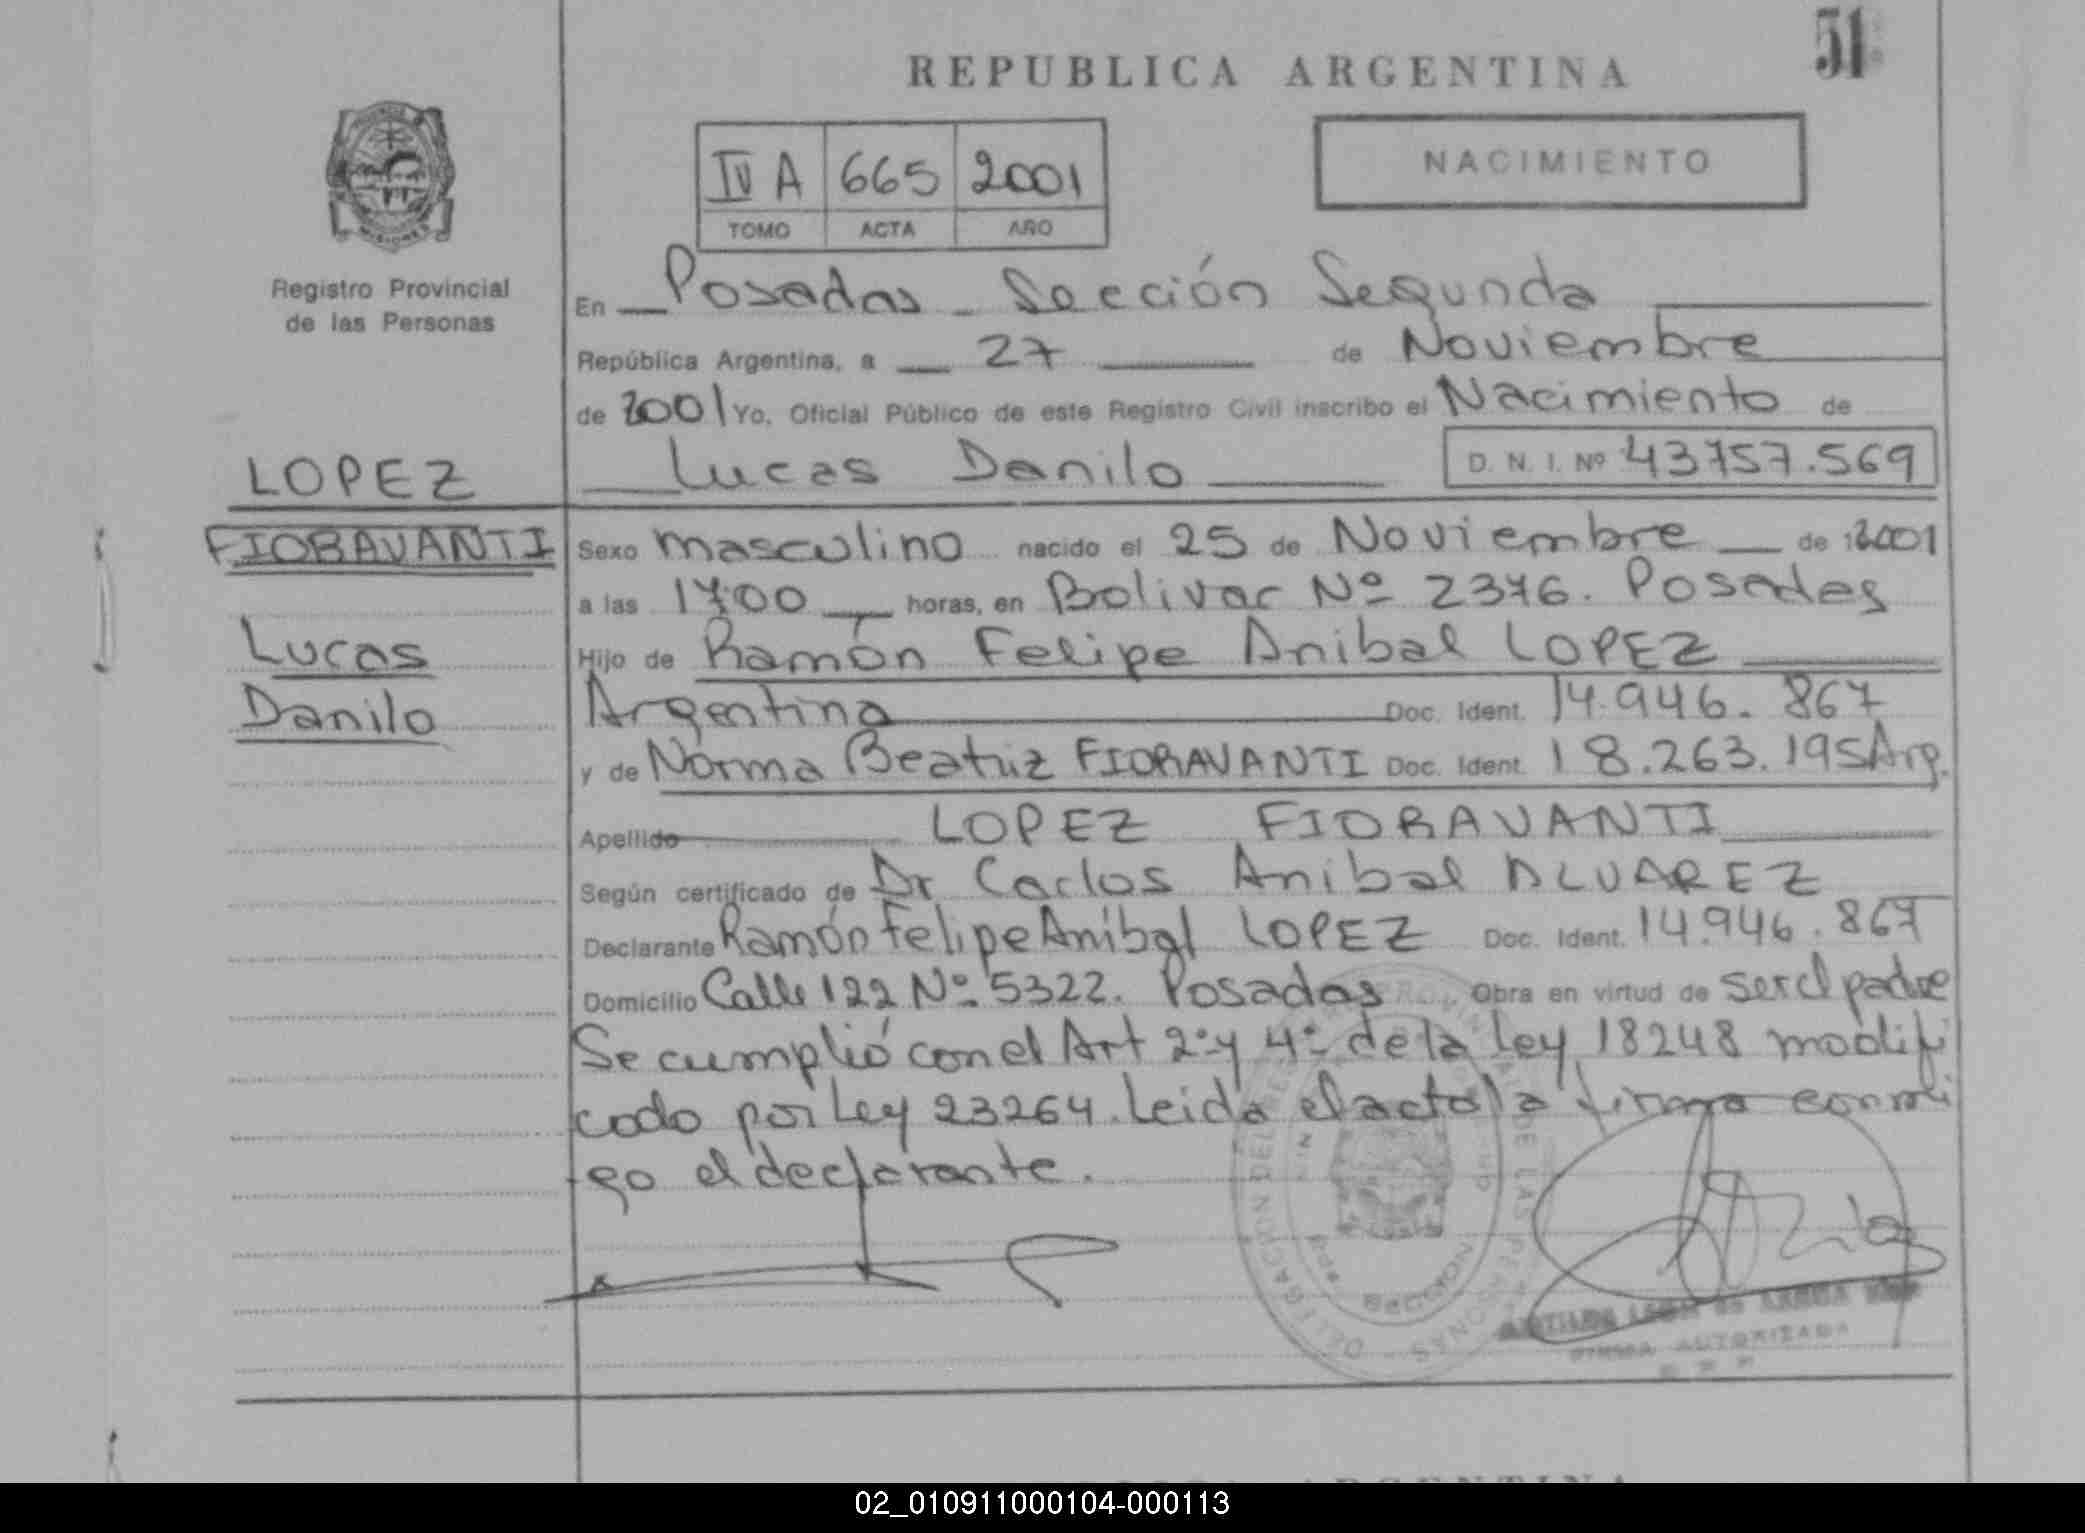 51
REPUBLICA ARGENTINA
NACIMIENTO
IV A 665 2001
TOMO ACTA AÑO
MISIONES
Registro Provincial
de las Personas
En Posadas - Sección Segunda
República Argentina, a 27 de Noviembre
de 2001 Yo, Oficial Público de este Registro Civil inscribo el Nacimiento de
Lucas Danilo D. N. I. Nº 43757.569
LOPEZ
FIORAVANTI
Lucas
Danilo
Sexo masculino nacido el 25 de Noviembre de 2001
a las 17:00 horas, en Bolivar Nº 2376. Posadas
Hijo de Ramón Felipe Anibal LOPEZ
Argentino Doc. Ident. 14.946.867
y de Norma Beatriz FIORAVANTI Doc. Ident. 18.263.195 Arg.
Apellido LOPEZ FIORAVANTI
Según certificado de Dr Carlos Anibal ALVAREZ
Declarante Ramón Felipe Aníbal LOPEZ Doc. Ident. 14.946.867
Domicilio Calle 122 Nº 5322. Posadas Obra en virtud de ser el padre
Se cumplió con el Art 2º y 4º de la Ley 18248 modifi
cado por Ley 23264. Leida el acta la firma conmi
go el declarante.
FIRMA AUTORIZADA
REPUBLICA ARGENTINA
02_010911000104-000113